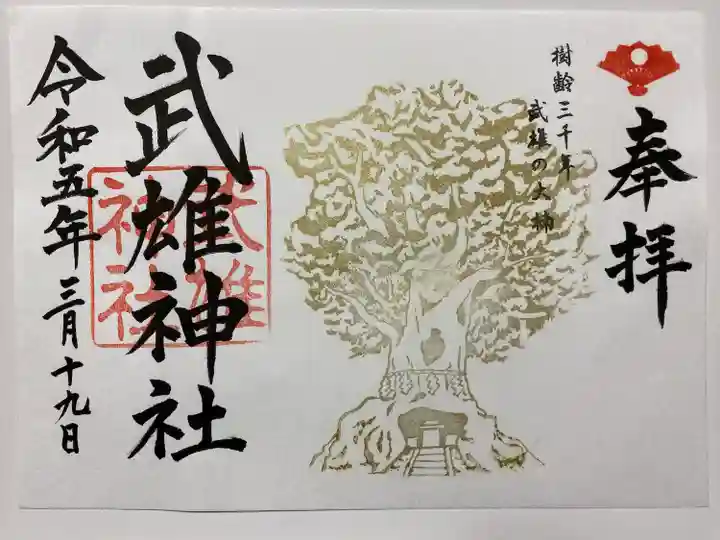 奉拝
樹齢三千年
武雄の大楠
武雄神社
武雄
神社
令和五年三月十九日